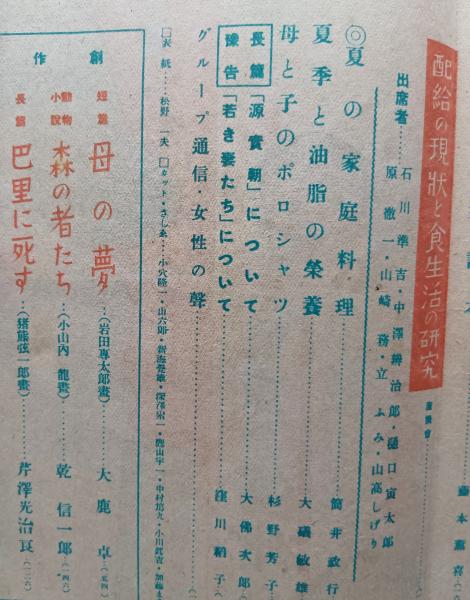 配給の現狀と食生活の研究
座談會
出席者……石川準吉・中澤辨治郎・樋口寅太郎
原徹一・山崎務・立ふみ・山高しげり
◎夏の家庭料理……筒井政行
夏季と油脂の榮養……大磯敏雄
母と子のポロシャツ……杉野芳子
長篇豫告
「源實朝」について……大佛次郎
「若き妻たち」について……窪川稻子
グループ通信・女性の聲
□表紙……松野一夫 □カット・さしゑ…小穴隆一・山六郎・
創作
短篇 母の夢(岩田專太郎畫)……大鹿卓(五四)
動物小說 森の者たち(小山內龍畫)……乾信一郎(四六)
長篇 巴里に死す(猪熊弦一郎畫)……芹澤光治良(一二六)